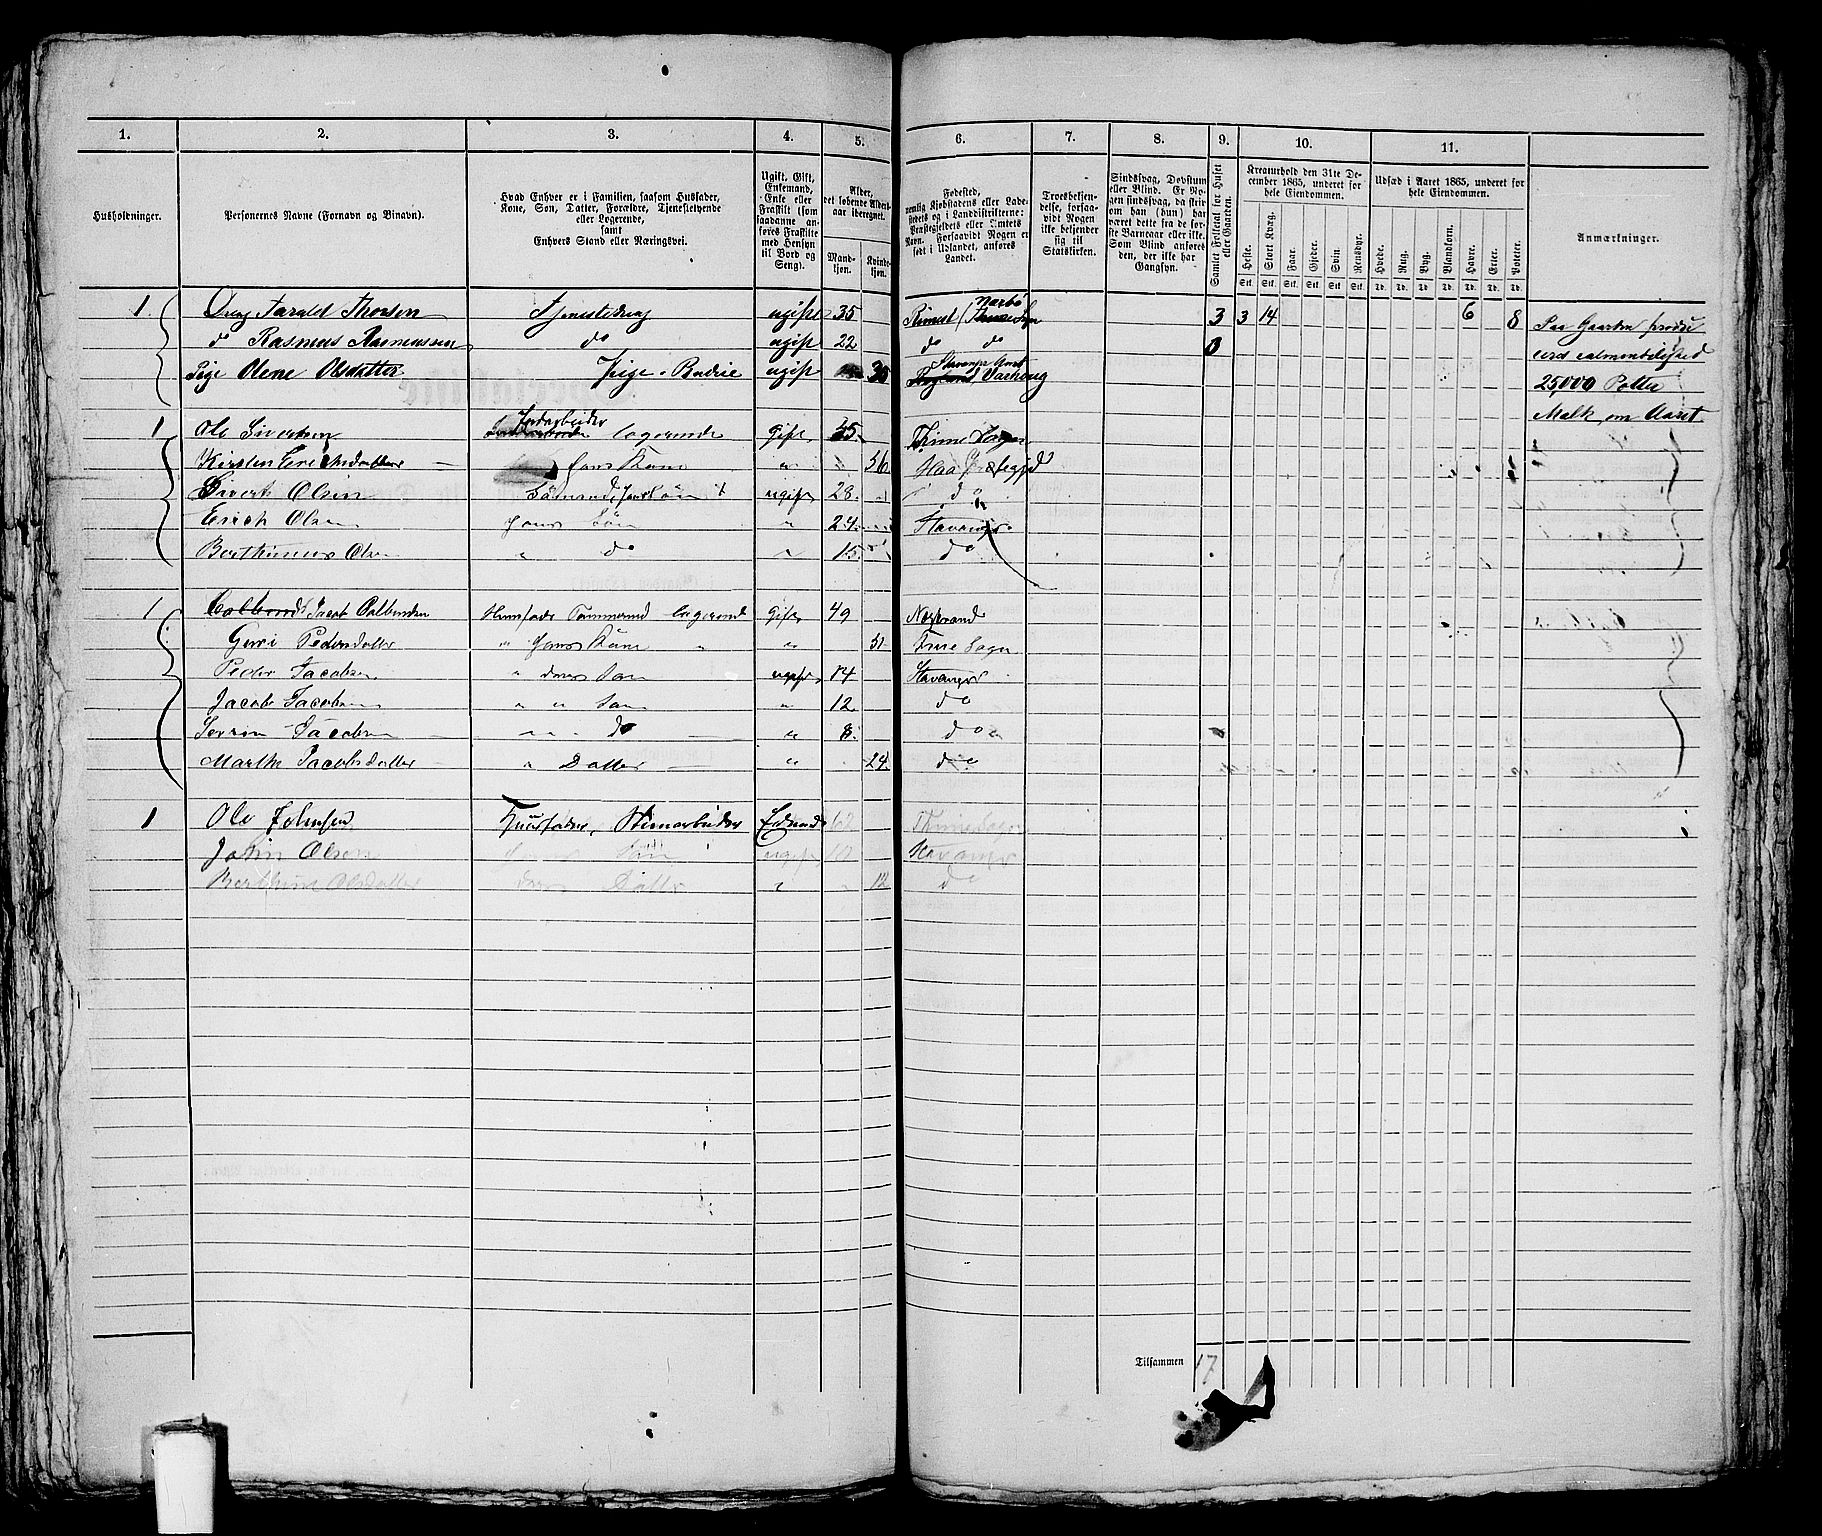 1. 2. 3. 4. 5. 6. 7. 8. 9. 10. 11.
Husholdninger.
Personernes Navne (Fornavn og Binavn).
Hvad Enhver er i Familien, saasom Husfader,
Kone, Søn, Datter, Forældre, Tjenestetyende
eller Logerende,
samt
Enhvers Stand eller Næringsvei.
Ugift, Gift,
Enkemand,
Enke eller
Fraskilt (som
saadanne an-
føres Fraskilte
med Hensyn
til Bord og
Seng).
Alder,
det løbende Alders-
aar iberegnet.
Mand-
kjøn.
Kvinde-
kjøn.
Fødested,
nemlig Kjøbstadens eller Lade-
stedets og i Landdistrikterne:
Præstegjeldets eller Amtets
Navn. Forsaavidt Nogen er
født i Udlandet, anføres
Landet.
Troesbekjen-
delse, forsaa-
vidt Nogen
ikke bekjender
sig til
Statskirken.
Sindssvag, Døvstum
eller Blind. Er No-
gen sindssvag, da skriv
om han (hun) har
været dette fra de før-
ste Barneaar eller ikke.
Som Blind anføres
den, der ikke har
Gangsyn.
Samlet Folketal for Huset
eller Gaarden.
Kreaturhold den 31te De-
cember 1865, underet for
hele Eiendommen.
Heste. Stort Kvæg. Faar. Gjeder. Svin. Rensdyr.
Stk. Stk. Stk. Stk. Stk. Stk.
Udsæd i Aaret 1865, underet for
hele Eiendommen.
Hvede. Rug. Byg. Blandkorn. Havre. Erter. Poteter.
Td. Td. Td. Td. Td. Td. Td.
Anmærkninger.
1 Dreng Tarald Thorsen Tjenestedreng ugift 35 3 3 14 6 8
Narbø
do Rasmus Rasmussen do ugift 22 do do 3
Pige Olene Olsdatter Pige ugift 35 Varhoug
Stavanger Amt
Paa Gaarden
25,000 Potter
Melk om Aaret
1 Ole Sivertsen logerende Gift 55 Time Sogn
Kirsten Erichsdatter Hans Kone " 56
Sivert Olsen ugift 28 do
Erich Olsen Hans Søn " 24 Stavanger
Olsen " do " 15 do
1 Jacob Husfader Tømmermand logerende Gift 49 Nærstrand
Guri Pedersdatter " Hans Kone " " 51 Time Sogn
Peder Jacobsen " deres Søn ugift 14 Stavanger
Jacob Jacobsen " " Søn " 12 do
Jacobsen " " do " 8 do
Martha Jacobsdatter " Datter " 24 do
1 Ole Johnsen Husfader, 62 Time Sogn
John Olsen Søn ugift Stavanger
Olsdatter deres Datter " 12 do
Tilsammen 17